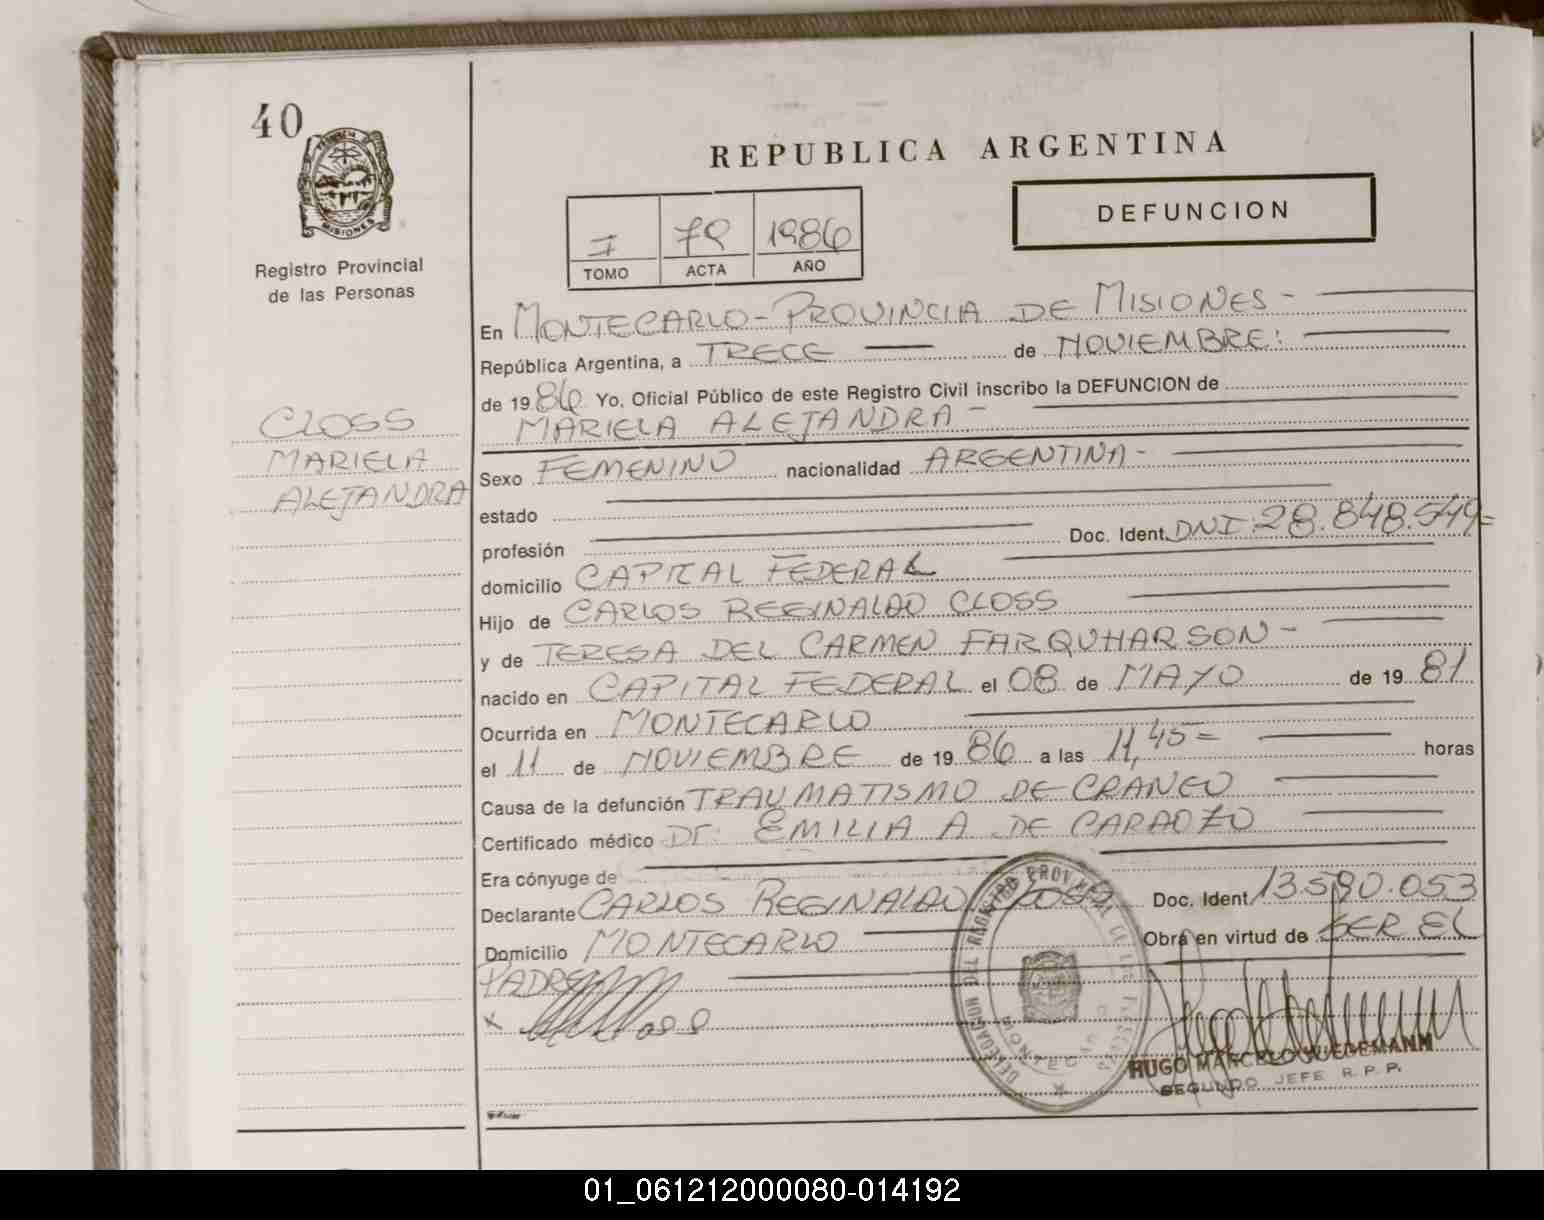 40
REPUBLICA ARGENTINA
DEFUNCION
I 79 1986
TOMO ACTA AÑO
PROVINCIA DE MISIONES
Registro Provincial
de las Personas
CLOSS
MARIELA
ALEJANDRA
En MONTECARLO - PROVINCIA DE MISIONES -
República Argentina, a TRECE de NOVIEMBRE:
de 1986 Yo, Oficial Público de este Registro Civil inscribo la DEFUNCION de
MARIELA ALEJANDRA -
Sexo FEMENINO nacionalidad ARGENTINA -
estado
profesión Doc. Ident. DNI 28.848.549=
domicilio CAPITAL FEDERAL
Hijo de CARLOS REGINALDO CLOSS
y de TERESA DEL CARMEN FARQUHARSON -
nacido en CAPITAL FEDERAL el 08 de MAYO de 1981
Ocurrida en MONTECARLO
el 11 de NOVIEMBRE de 1986 a las 11,45= horas
Causa de la defunción TRAUMATISMO DE CRANEO
Certificado médico Dr: EMILIA A. DE CARDOZO
Era cónyuge de
Declarante CARLOS REGINALDO CLOSS Doc. Ident 13.590.053
Domicilio MONTECARLO Obra en virtud de SER EL
PADRE
x
DELEGACION DEL REGISTRO PROVINCIAL DE LAS PERSONAS
MONTECARLO
HUGO MARCELO GUEDEMANN
SEGUNDO JEFE R.P.P.
01_061212000080-014192